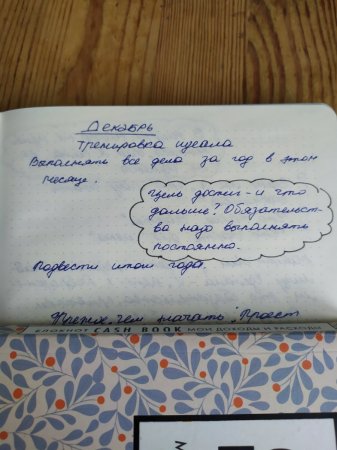 Декабрь
Тренировка идеала
Выполнять все дела за год в этом
месяце.
Цель достиг - и что
дальше? Обязательст-
ва надо выполнять
постоянно.
Подвести итоги года.
Прежде, чем начать "Проект
БЛОКНОТ CASH BOOK МОИ ДОХОДЫ И РАСХОДЫ